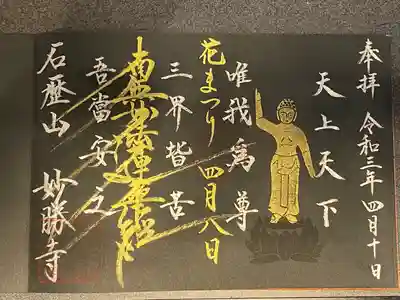 奉拝 令和三年 四月十日
天上天下
唯我為尊
花まつり 四月八日
三界皆苦
南無妙法蓮華経
吾當安之
石歴山 妙勝寺